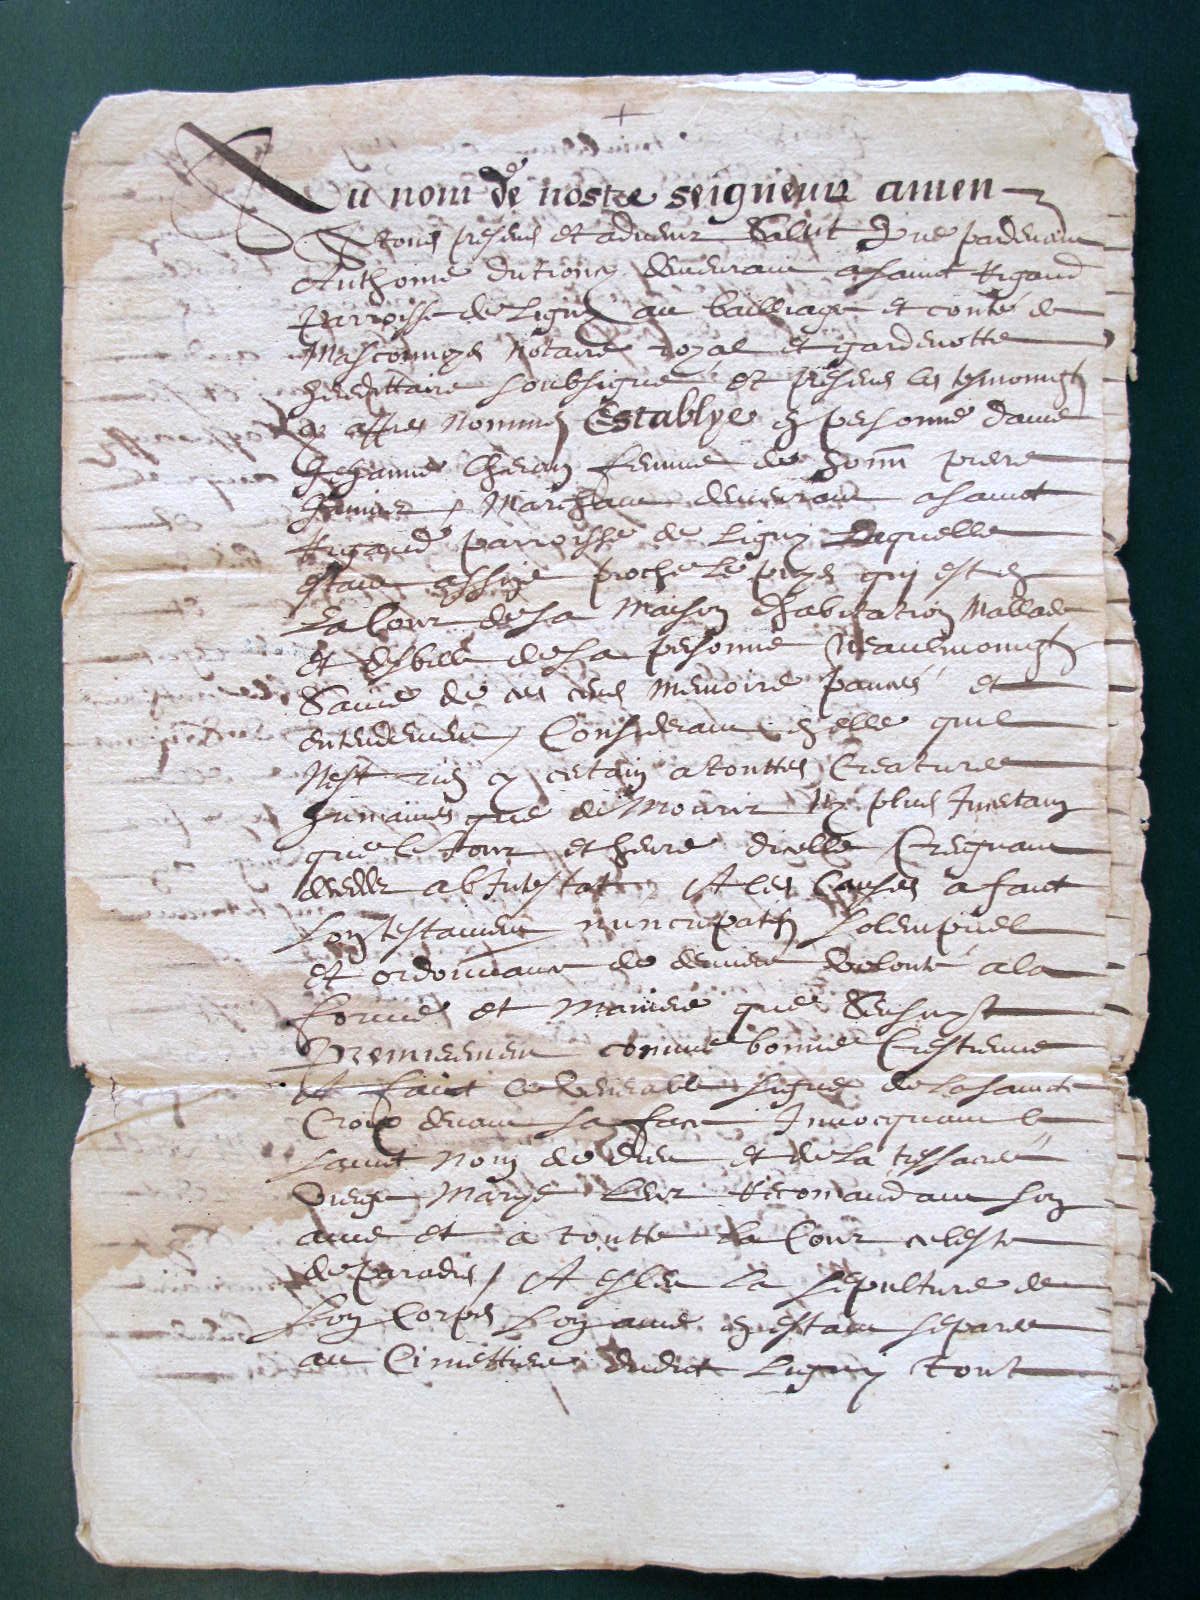 Au nom de nostre seigneur amen
A tous presens et advenir Salut que pardevant
Anthoine dutroncy demeurant a saint Rigaud
Parroisse de Ligny au bailliage et conté de
Masconnoys Notaire royal et gardenotte
heredittaire soubsigne et presens les tesmoings
cy appres nommes Establye en personne dame
Jehanne femme de honn pierre
Marchant demeurant a sainct
Rigaud parroisse de Ligny Laquelle
estant assize proche le puys qui est en
La Cour de sa Maison dhabitation Mallade
et desbille de sa personne Neaulmoings
Saine de ces cens memoire pancés et
entendement Considerant en elle quil
Nest rien cy certain a touttes Creatures
humaines que de Mourir Ny plus Incertain
que le Jour et heure dicelle Creignant
deceder abIntestat A ces Causes a faict
son testament nuncupatif solempnel
et ordonnance de derniere volonté a la
forme et maniere que Sensuyt
Premierement comme bonne Crestienne
A faict le venerable signe de la saincte
Croix devant sa face Invocquant le
sainct Nom de dieu et de la tressacrée
vierge Marye Leur Recomandant son
ame et a toutte la Cour celeste
de paradis / A esleu La sepulture de
son Corps son ame en estant separée
au Cimettiere dudict Ligny tout